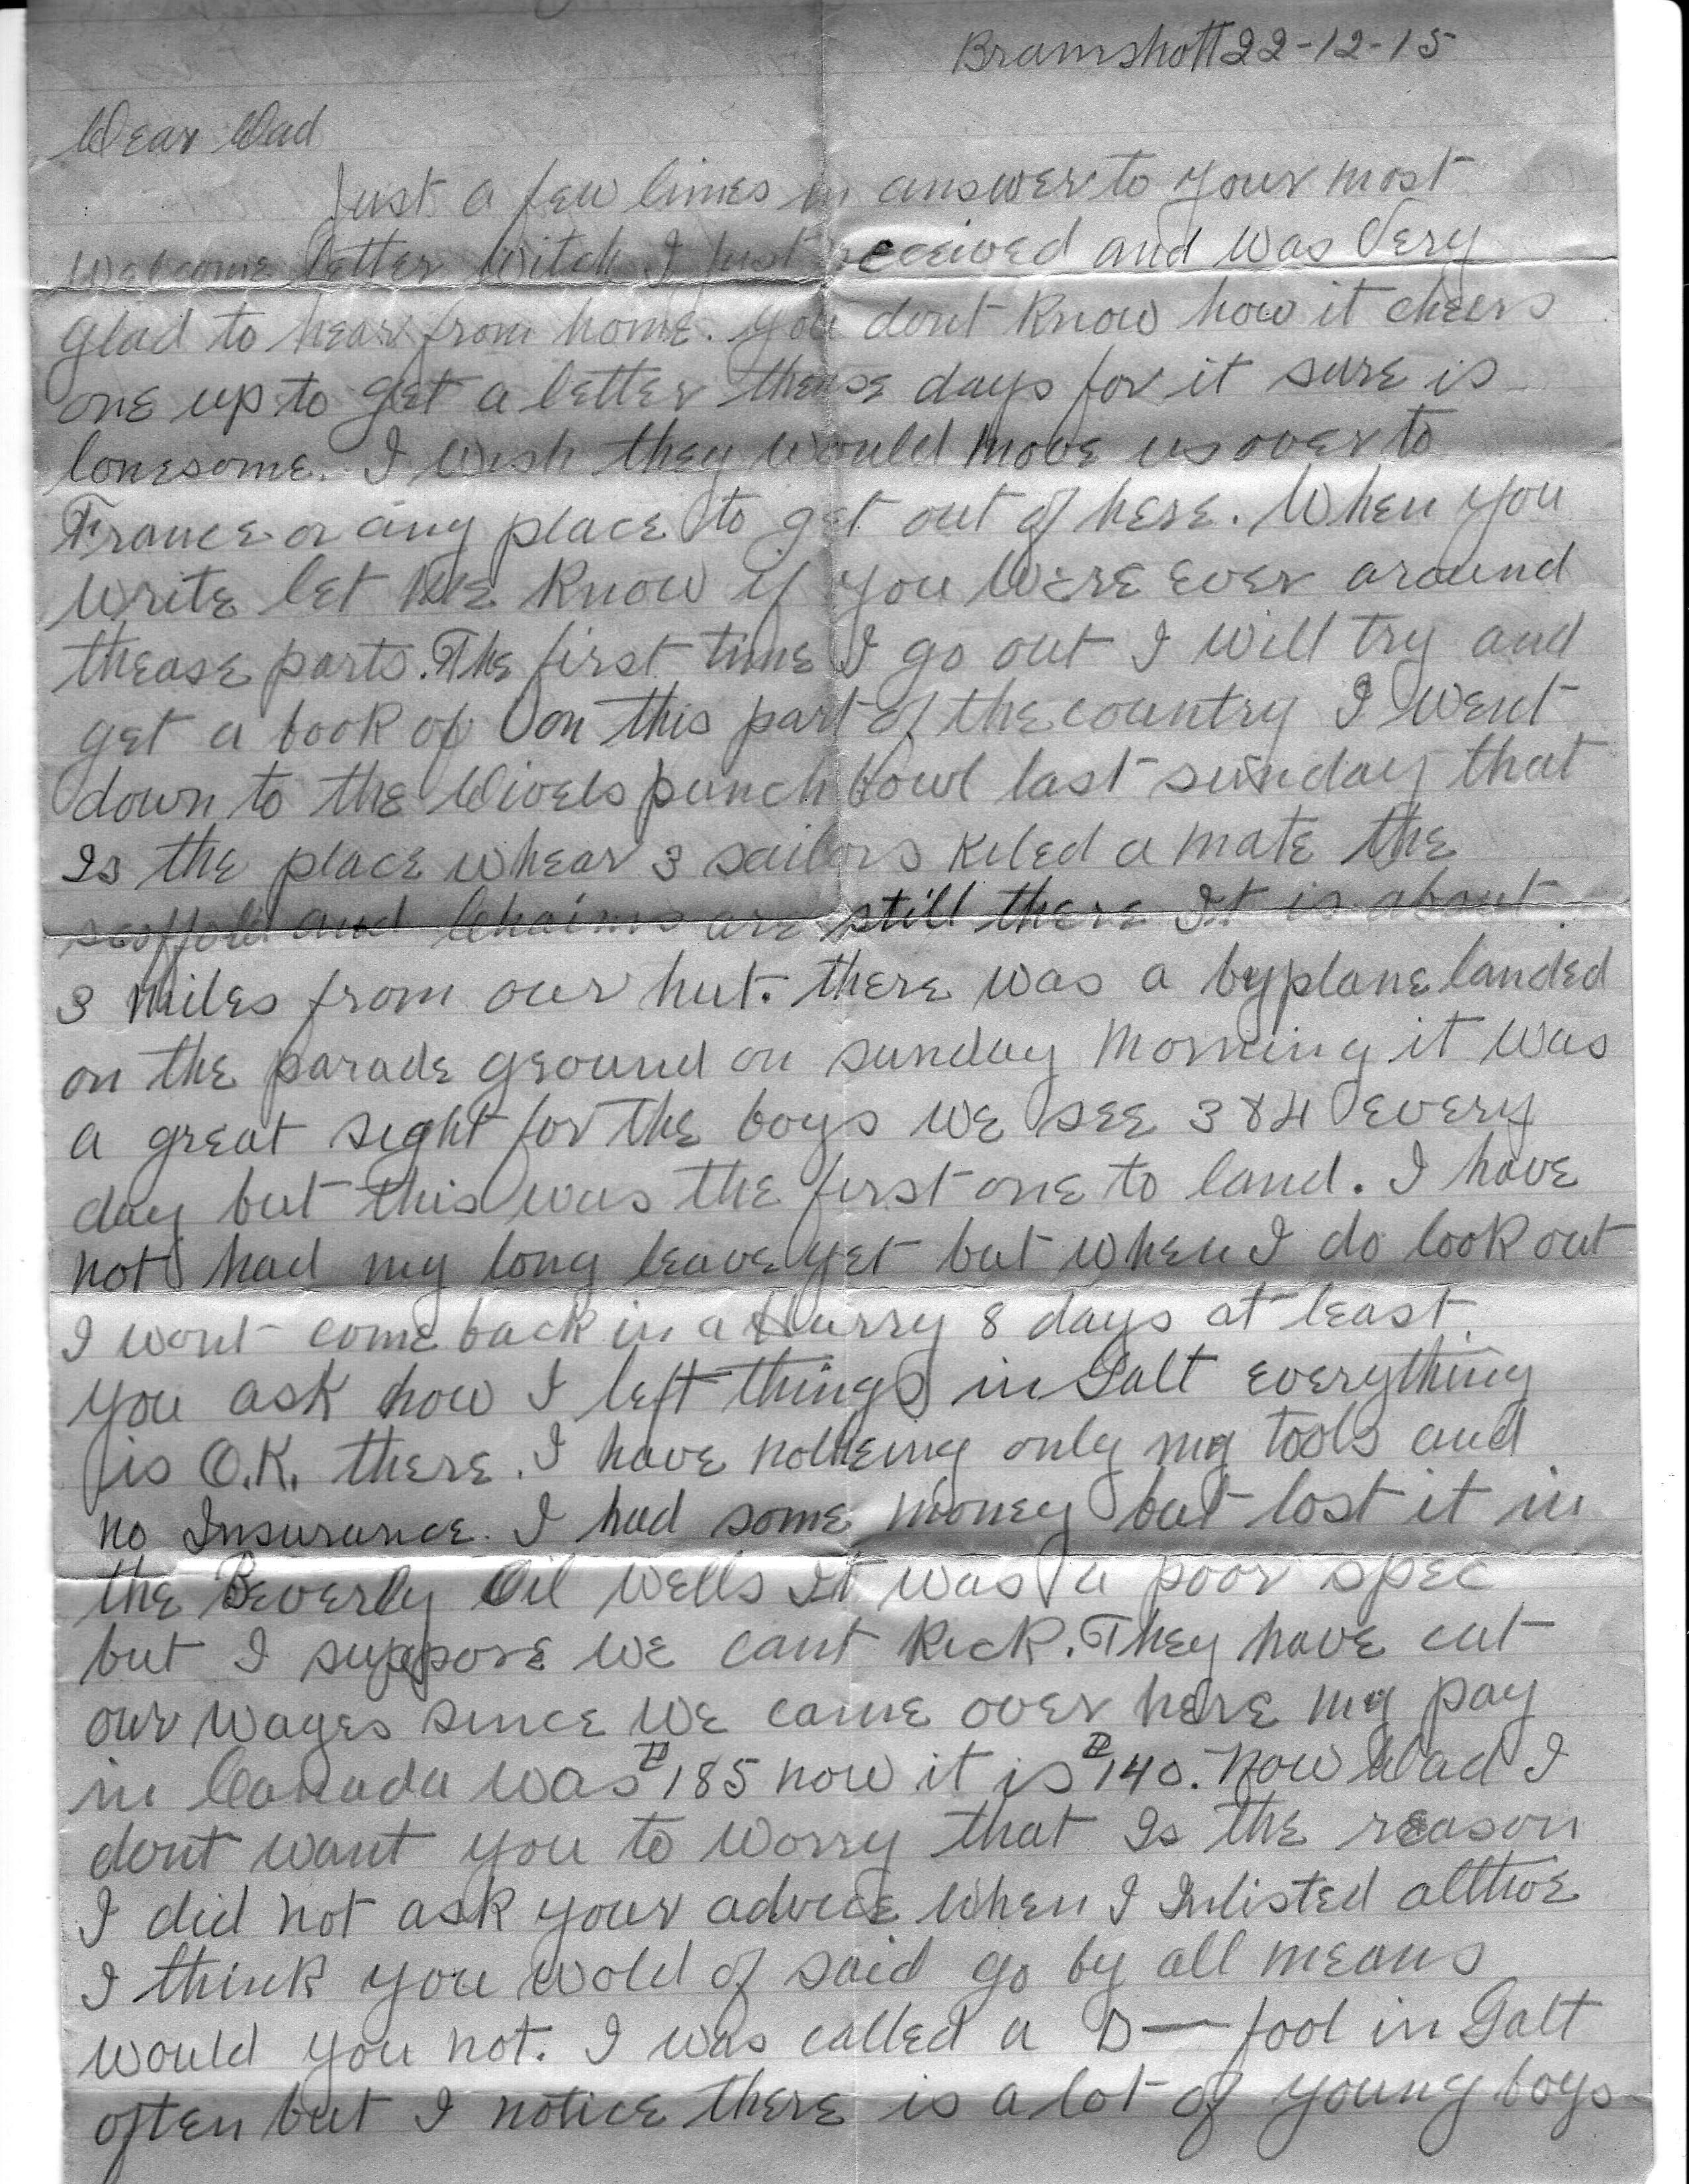 Bramshott 22-12-15
Dear Dad
Just a few lines in answer to your most
welcome letter witch I just received and was Very
glad to hear from home. You dont know how it cheers
one up to get a letter thease days for it sure is
lonesome. I wish they would move us over to
France or any place to get out of here. When you
write let me know if you were ever around
thease parts. The first time I go out I will try and
get a book of on this part of the country I went
down to the Divels punch bowl last sunday that
Is the place whear 3 sailors kiled a mate the
scaffold and Chains are still there It is about
3 miles from our hut. there was a byplane landed
on the parade ground on sunday morning it was
a great sight for the boys we see 3 & 4 every
day but this was the first one to land. I have
not had my long leave yet but when I do look out
I wont come back in a hurry 8 days at least
you ask how I left things in Galt everything
is O.K. there. I have notheing only my tools and
no Insurance. I had some money but lost it in
the Beverly Oil wells It was a poor spec
but I suppose we cant kick. They have cut
our wages since we came over here my pay
in Canada was $185 now it is $140. Now Dad I
dont want you to worry that Is the reason
I did not ask your advice when I Inlisted althoe
I think you wold of said go by all means
would you not. I was called a D— fool in Galt
often but I notice there is a lot of young boys